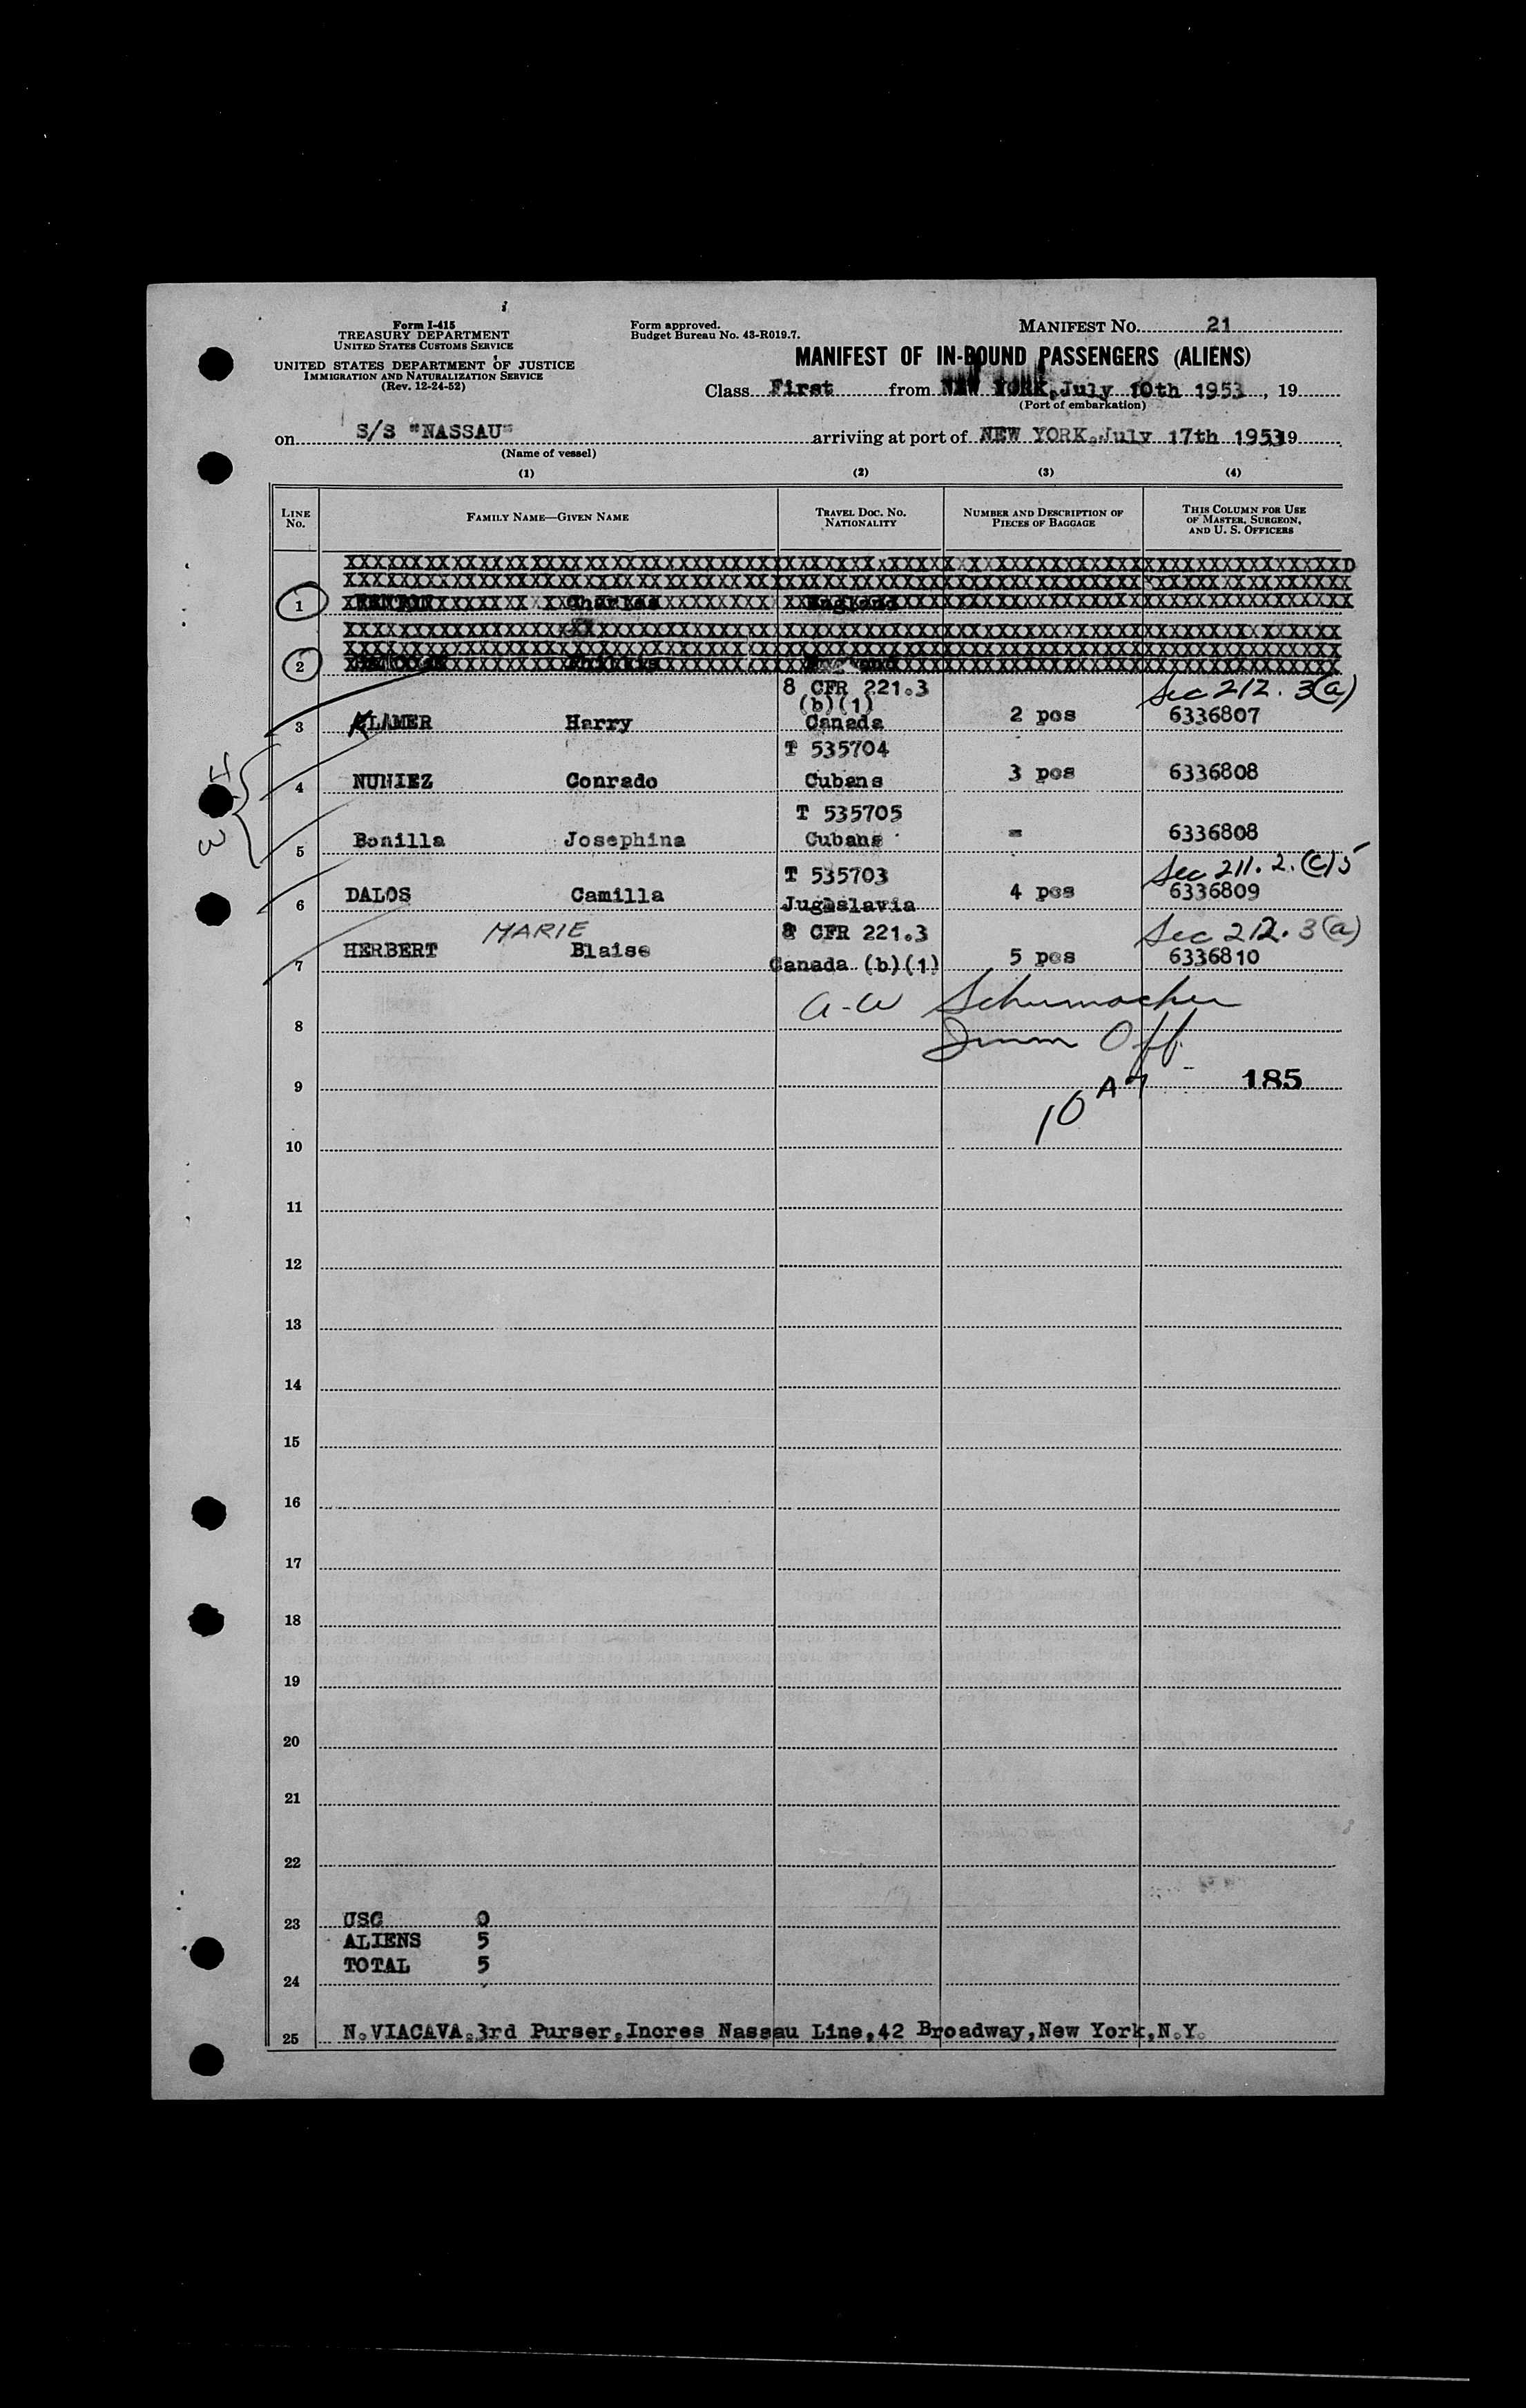 Form I-415
TREASURY DEPARTMENT
UNITED STATES CUSTOMS SERVICE
UNITED STATES DEPARTMENT OF JUSTICE
IMMIGRATION AND NATURALIZATION SERVICE
(Rev. 12-24-52)
Form approved.
Budget Bureau No. 43-R019.7.
MANIFEST NO. 21
MANIFEST OF IN-BOUND PASSENGERS (ALIENS)
Class First from NEW YORK, July 10th 1953, 19
(Port of embarkation)
on S/S "NASSAU" arriving at port of NEW YORK, July 17th 1953 19
(Name of vessel)
(1) (2) (3) (4)
LINE NO. FAMILY NAME—GIVEN NAME TRAVEL DOC. NO. NATIONALITY NUMBER AND DESCRIPTION OF PIECES OF BAGGAGE THIS COLUMN FOR USE OF MASTER, SURGEON, AND U. S. OFFICERS
1 Charles England
2
8 CFR 221.3 Sec 212.3(a)
(b)(1)
3 KLAMER Harry Canada 2 pcs 6336807
T 535704
4 NUNIEZ Conrado Cubans 3 pcs 6336808
T 535705
5 Bonilla Josephina Cubans = 6336808
T 535703 Sec 211.2.(c)5
6 DALOS Camilla Jugoslavia 4 pcs 6336809
MARIE 8 CFR 221.3 Sec 212.3(a)
7 HERBERT Blaise Canada (b)(1) 5 pcs 6336810
a-w Schumacher
8 Imm Off.
9 185
10
11
12
13
14
15
16
17
18
19
20
21
22
23 USC 0
ALIENS 5
TOTAL 5
24
25 N.VIACAVA.3rd Purser.Incres Nassau Line,42 Broadway,New York,N.Y.